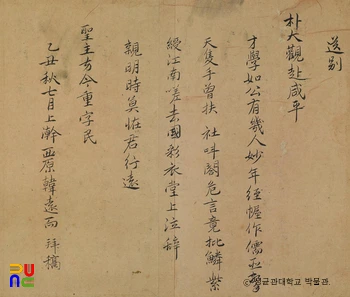 送別
朴大觀赴咸平
才學如公有幾人妙年經幄作儒臣擎
天隻手曾扶社叫閤危言竟批鱗紫
綬江南嗟去國彩衣堂上泣辭
親明時莫恠君行遠
聖主方今重字民
乙丑秋七月上澣西原韓遠 拜稿
© 성균관대학교 박물관